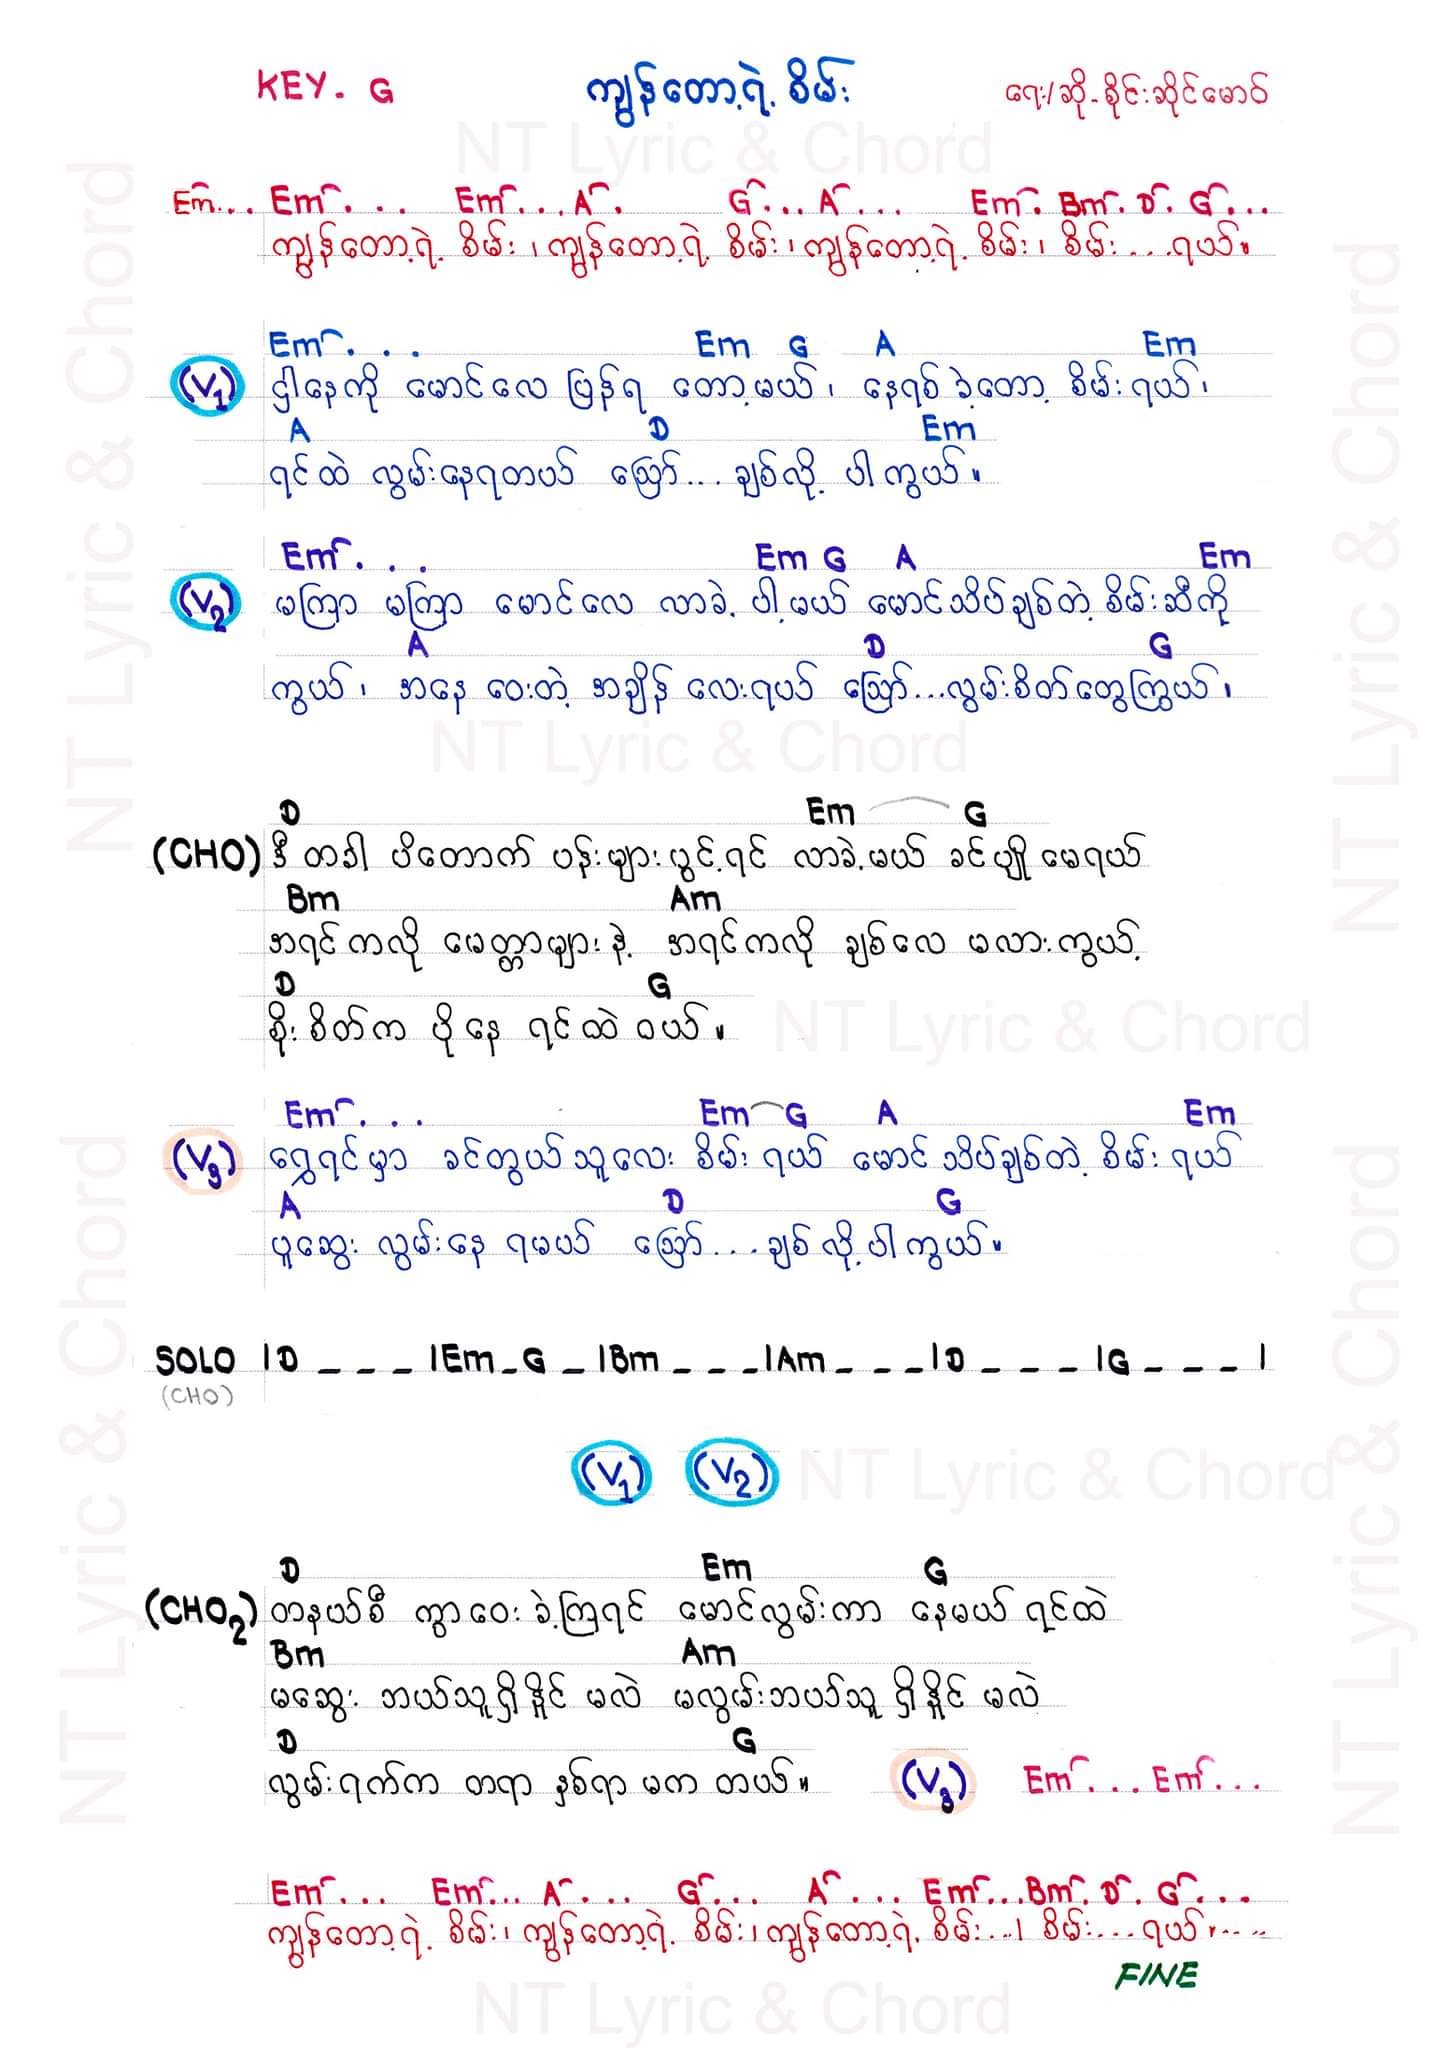 KEY. G ကျွန်တော့်ရဲ့ စိမ်း ရေး/ဆို-စိုင်းဆိုင်မောဝ်
NT Lyric & Chord
Em... Em... Em...A. G...A... Em. Bm. D. G...
ကျွန်တော့ရဲ့ စိမ်း၊ ကျွန်တော့ရဲ့ စိမ်း၊ ကျွန်တော့ရဲ့ စိမ်း၊ စိမ်း...ရယ်။
Em... Em G A Em
(V1) ဌါနေကို မောင်လေ ပြန်ရ တော့မယ်၊ နေရစ်ခဲ့တော့ စိမ်းရယ်၊
A D Em
ရင်ထဲ လွမ်းနေရတယ် ဪ... ချစ်လို့ ပါကွယ်။
Em... Em G A Em
(V2) မကြာ မကြာ မောင်လေ လာခဲ့ ပါ့မယ် မောင်သိပ်ချစ်တဲ့ စိမ်းဆီကို
A D G
ကွယ်၊ အနေ ဝေးတဲ့ အချိန် လေးရယ် ဪ...လွမ်းစိတ်တွေကြွယ်၊
NT Lyric & Chord
D Em G
(CHO) ဒီတခါ ပိတောက် ပန်းများပွင့်ရင် လာခဲ့မယ် ခင်ပျိုမေရယ်
Bm Am
အရင်ကလို မေတ္တာများနဲ့ အရင်ကလို ချစ်လေ မလားကွယ့်
D G
စိုးစိတ်က ပိုနေ ရင်ထဲဝယ်။
NT Lyric & Chord
Em... Em G A Em
(V3) ရွှေရင်မှာ ခင်တွယ်သူလေး စိမ်းရယ် မောင်သိပ်ချစ်တဲ့ စိမ်းရယ်
A D G
ပူဆွေး လွမ်းနေ ရမယ် ဪ....ချစ်လို့ပါကွယ်။
SOLO |D _ _ _ |Em _ G _ |Bm _ _ _ |Am _ _ _ |D _ _ _ |G _ _ _ |
(CHO)
(V1) (V2)
NT Lyric & Chord
D Em G
(CHO2) တနယ်စီ ကွာဝေးခဲ့ကြရင် မောင်လွမ်းကာ နေမယ်ရင်ထဲ
Bm Am
မဆွေး ဘယ်သူရှိနိုင် မလဲ မလွမ်းဘယ်သူ ရှိနိုင် မလဲ
D G
လွမ်းရက်က တရာ နှစ်ရာ မက တယ်။ (V3) Em... Em...
Em... Em... A... G... A... Em...Bm. D. G...
ကျွန်တော့ရဲ့ စိမ်း၊ ကျွန်တော့ရဲ့ စိမ်း၊ ကျွန်တော့ရဲ့ စိမ်း...၊ စိမ်း....ရယ်။.....
FINE
NT Lyric & Chord
NT Lyric & Chord
NT Lyric & Chord
NT Lyric & Chord
NT Lyric & Chord